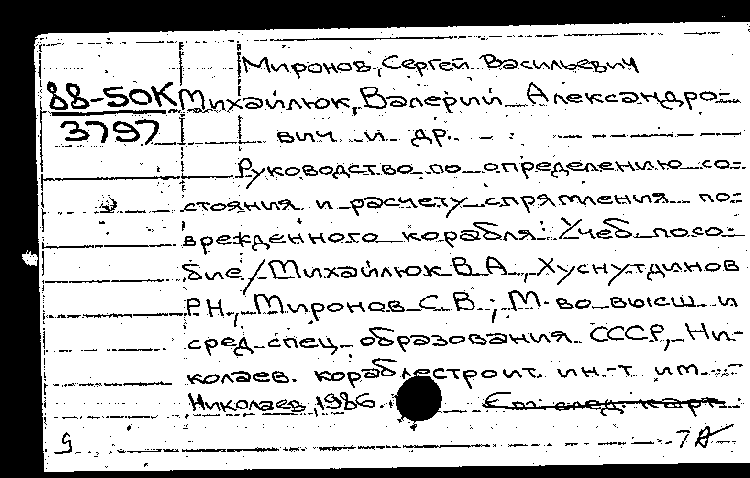 Миронов, Сергей Васильевич
88-50К Михайлюк, Валерий Александро-
3797 вич и др.
Руководство по определению со-
стояния и расчету спрямления по-
врежденного корабля: Учеб. посо-
бие / Михайлюк В. А., Хуснутдинов
Р.Н., Миронов С. В.; М-во высш. и
сред. спец. образования СССР, Ни-
колаев. кораблестроит. ин-т им.
Николаев, 1986.
См. след. карт.
9